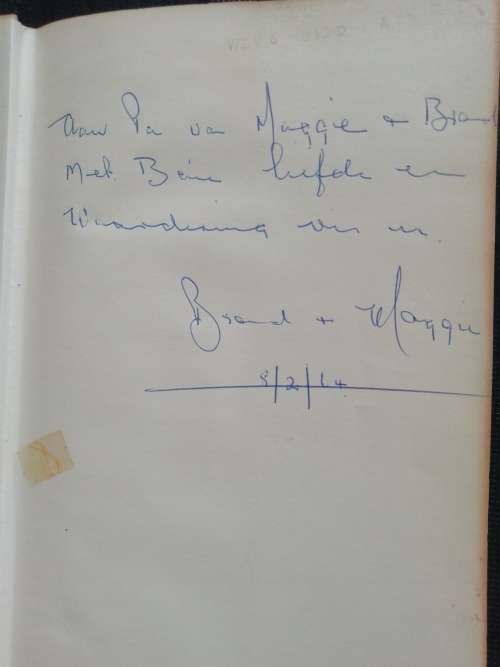 Aan Pa van Maggie + Brand
Met Baie liefde en
Waardering vir u.
Brand + Maggie
8/2/14